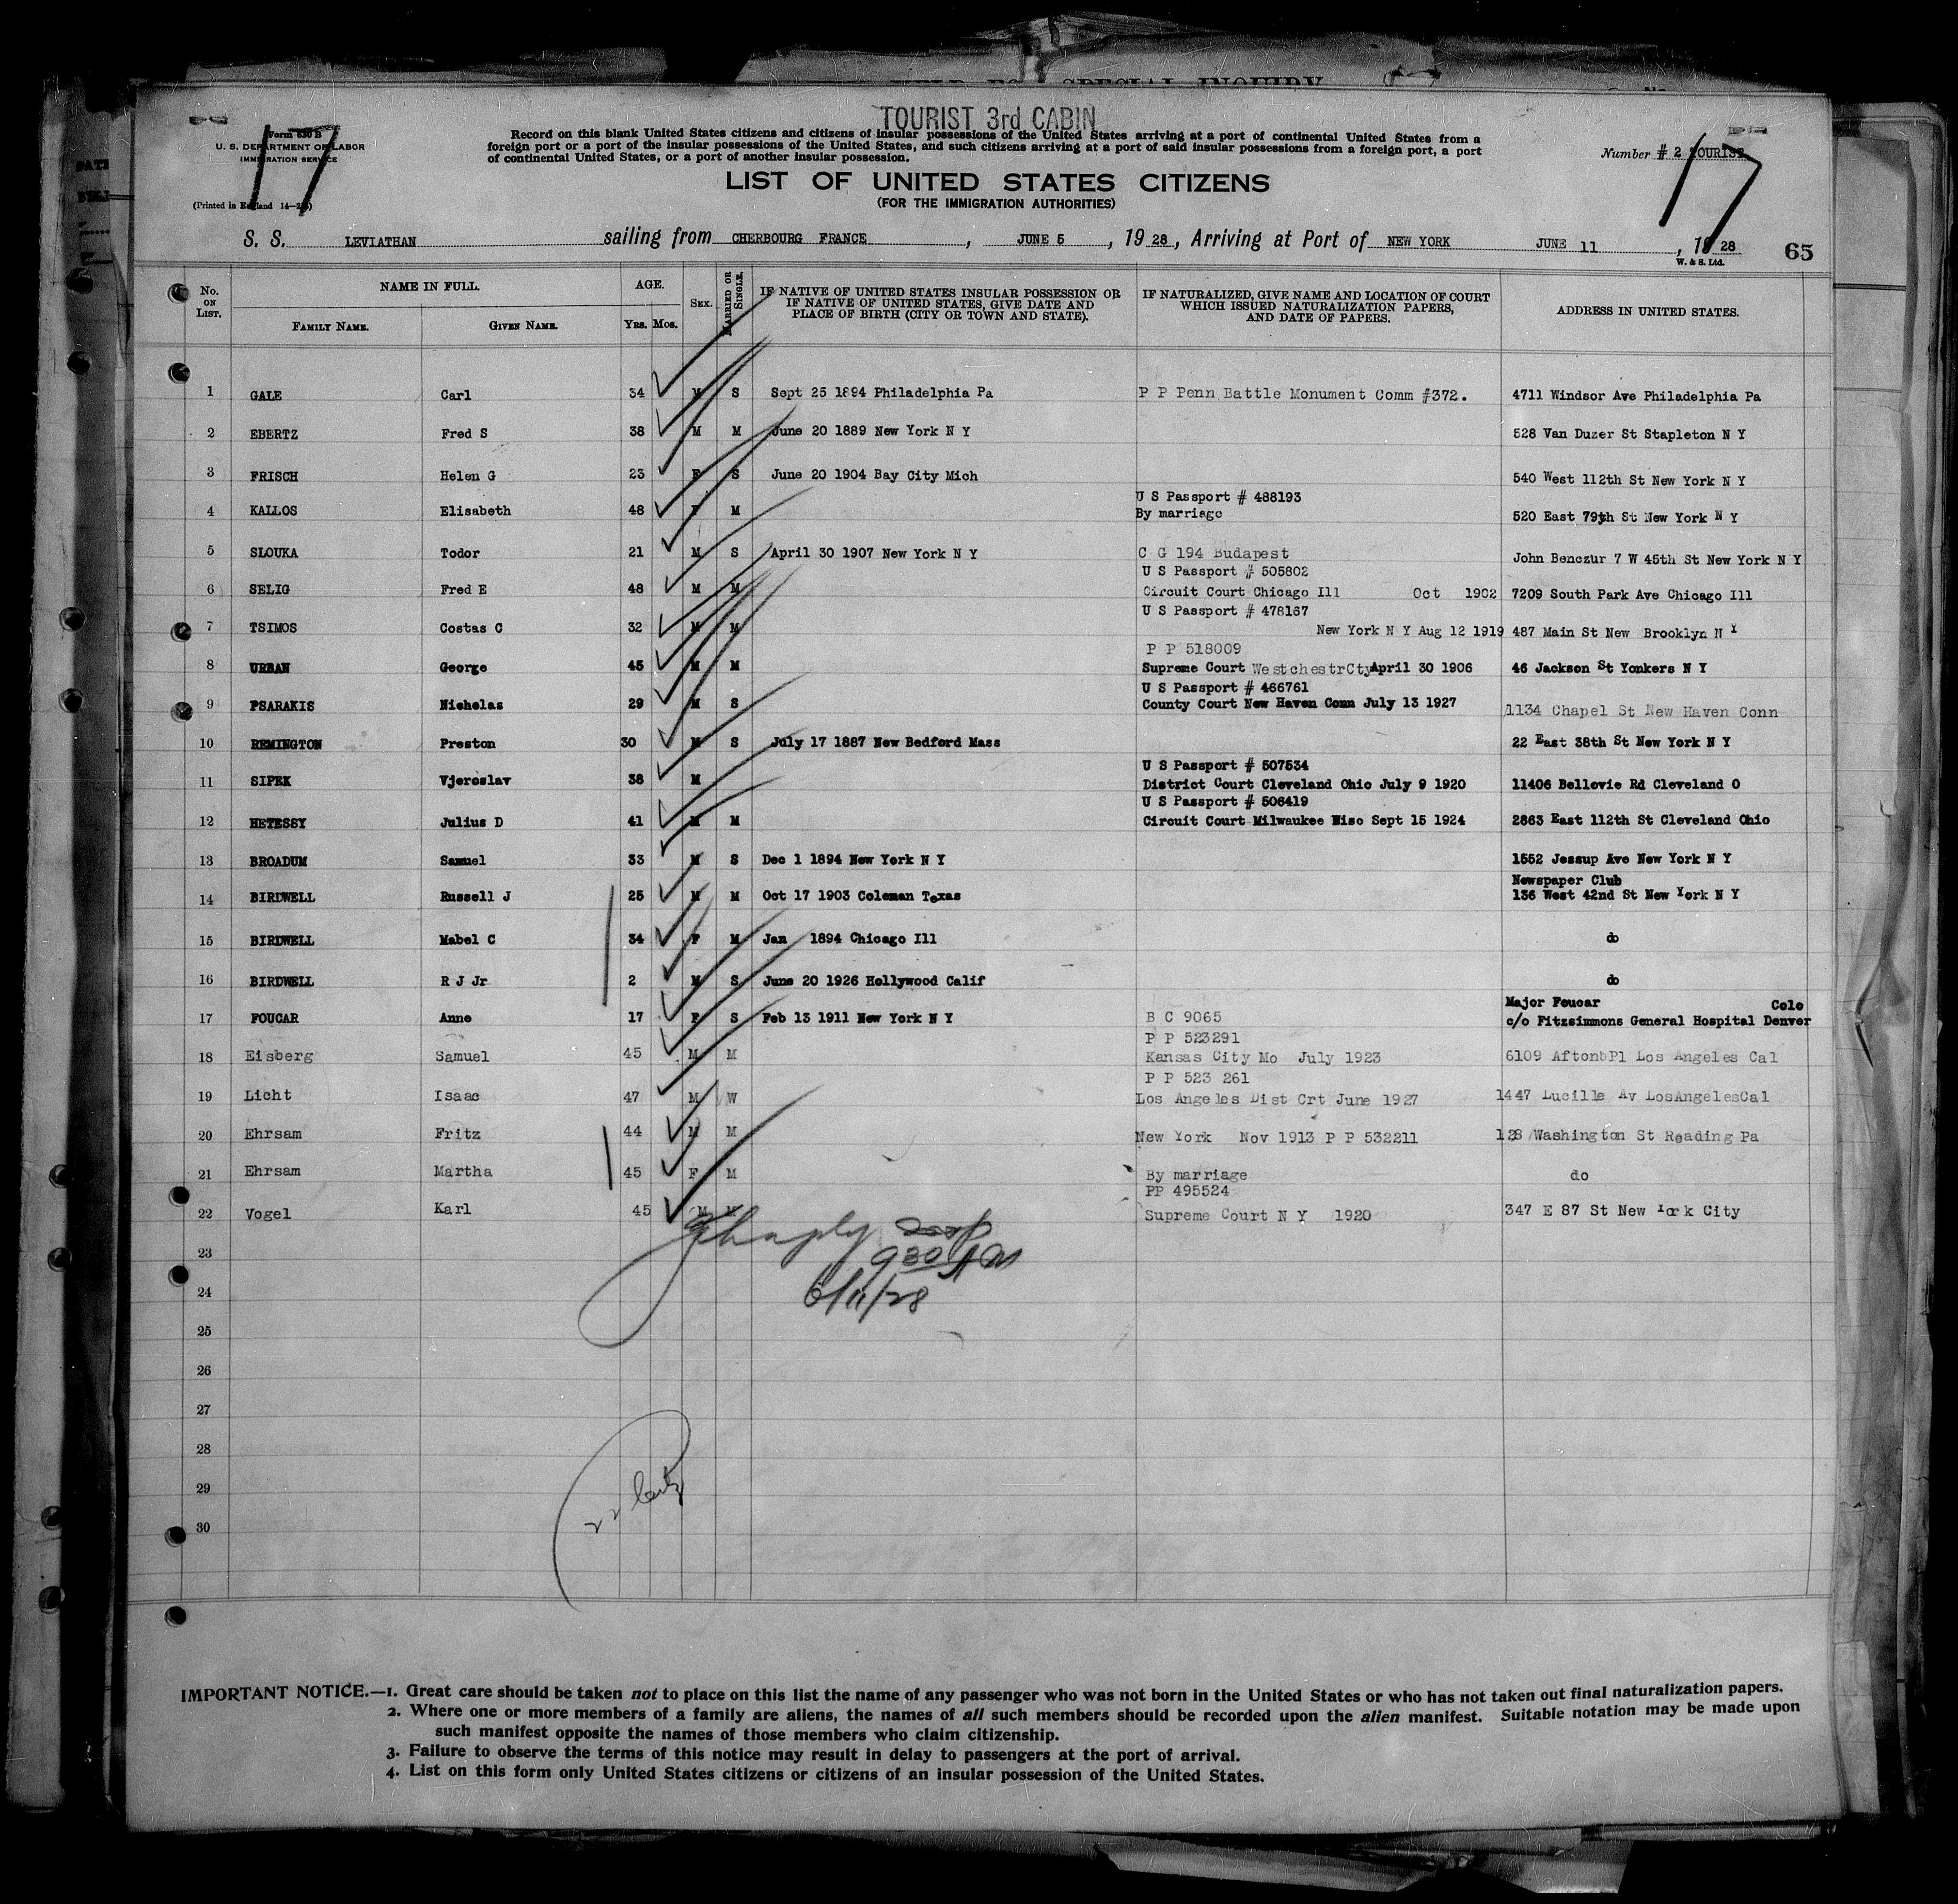 HELD FOR SPECIAL INQUIRY
TOURIST 3rd CABIN
17
Form 630 B
U. S. DEPARTMENT OF LABOR
IMMIGRATION SERVICE
(Printed in England
Record on this blank United States citizens and citizens of insular possessions of the United States arriving at a port of continental United States from a
foreign port or a port of the insular possessions of the United States, and such citizens arriving at a port of said insular possessions from a foreign port, a port
of continental United States, or a port of another insular possession.
Number # 2 TOURIST
17
LIST OF UNITED STATES CITIZENS
(FOR THE IMMIGRATION AUTHORITIES)
S. S. LEVIATHAN sailing from CHERBOURG FRANCE, JUNE 5, 1928, Arriving at Port of NEW YORK JUNE 11, 1928
W. & S. Ltd.
65
No. ON LIST. NAME IN FULL. FAMILY NAME. GIVEN NAME. AGE. YRS. MOS. SEX. MARRIED OR SINGLE. IF NATIVE OF UNITED STATES INSULAR POSSESSION OR IF NATIVE OF UNITED STATES, GIVE DATE AND PLACE OF BIRTH (CITY OR TOWN AND STATE). IF NATURALIZED, GIVE NAME AND LOCATION OF COURT WHICH ISSUED NATURALIZATION PAPERS, AND DATE OF PAPERS. ADDRESS IN UNITED STATES.
1 GALE Carl 34 M S Sept 25 1894 Philadelphia Pa P P Penn Battle Monument Comm #372. 4711 Windsor Ave Philadelphia Pa
2 EBERTZ Fred S 38 M M June 20 1889 New York N Y 528 Van Duzer St Stapleton N Y
3 FRISCH Helen G 23 F S June 20 1904 Bay City Mich 540 West 112th St New York N Y
U S Passport # 488193
4 KALLOS Elisabeth 48 F M By marriage 520 East 79th St New York N Y
5 SLOUKA Todor 21 M S April 30 1907 New York N Y C G 194 Budapest John Benczur 7 W 45th St New York N Y
U S Passport # 505802
6 SELIG Fred E 48 M M Circuit Court Chicago Ill Oct 1902 7209 South Park Ave Chicago Ill
U S Passport # 478167
7 TSIMOS Costas C 32 M M New York N Y Aug 12 1919 487 Main St New Brooklyn N Y
P P 518009
8 URBAN George 45 M M Supreme Court WestchestrCty April 30 1906 46 Jackson St Yonkers N Y
U S Passport # 466761
9 PSARAKIS Nicholas 29 M S County Court New Haven Conn July 13 1927 1134 Chapel St New Haven Conn
10 REMINGTON Preston 30 M S July 17 1887 New Bedford Mass 22 East 38th St New York N Y
U S Passport # 507534
11 SIPEK Vjeroslav 38 M District Court Cleveland Ohio July 9 1920 11406 Bellevie Rd Cleveland O
U S Passport # 506419
12 HETESSY Julius D 41 M M Circuit Court Milwaukee Wisc Sept 15 1924 2863 East 112th St Cleveland Ohio
13 BROADUM Samuel 33 M S Dec 1 1894 New York N Y 1552 Jessup Ave New York N Y
Newspaper Club
14 BIRDWELL Russell J 25 M M Oct 17 1903 Coleman Texas 136 West 42nd St New York N Y
15 BIRDWELL Mabel C 34 F M Jan 1894 Chicago Ill do
16 BIRDWELL R J Jr 2 M S June 20 1926 Hollywood Calif do
Major Foucar Colo
17 FOUCAR Anne 17 F S Feb 13 1911 New York N Y B C 9065 c/o Fitzsimmons General Hospital Denver
P P 523291
18 Eisberg Samuel 45 M M Kansas City Mo July 1923 6109 AftonbPl Los Angeles Cal
P P 523 261
19 Licht Isaac 47 M W Los Angeles Dist Crt June 1927 1447 Lucille Av LosAngelesCal
20 Ehrsam Fritz 44 M M New York Nov 1913 P P 532211 128 Washington St Reading Pa
21 Ehrsam Martha 45 F M By marriage do
PP 495524
22 Vogel Karl 45 M M Supreme Court N Y 1920 347 E 87 St New York City
23
930 AM
24
6/11/28
25
26
27
28
29
22
30
IMPORTANT NOTICE.—1. Great care should be taken not to place on this list the name of any passenger who was not born in the United States or who has not taken out final naturalization papers.
2. Where one or more members of a family are aliens, the names of all such members should be recorded upon the alien manifest. Suitable notation may be made upon
such manifest opposite the names of those members who claim citizenship.
3. Failure to observe the terms of this notice may result in delay to passengers at the port of arrival.
4. List on this form only United States citizens or citizens of an insular possession of the United States.